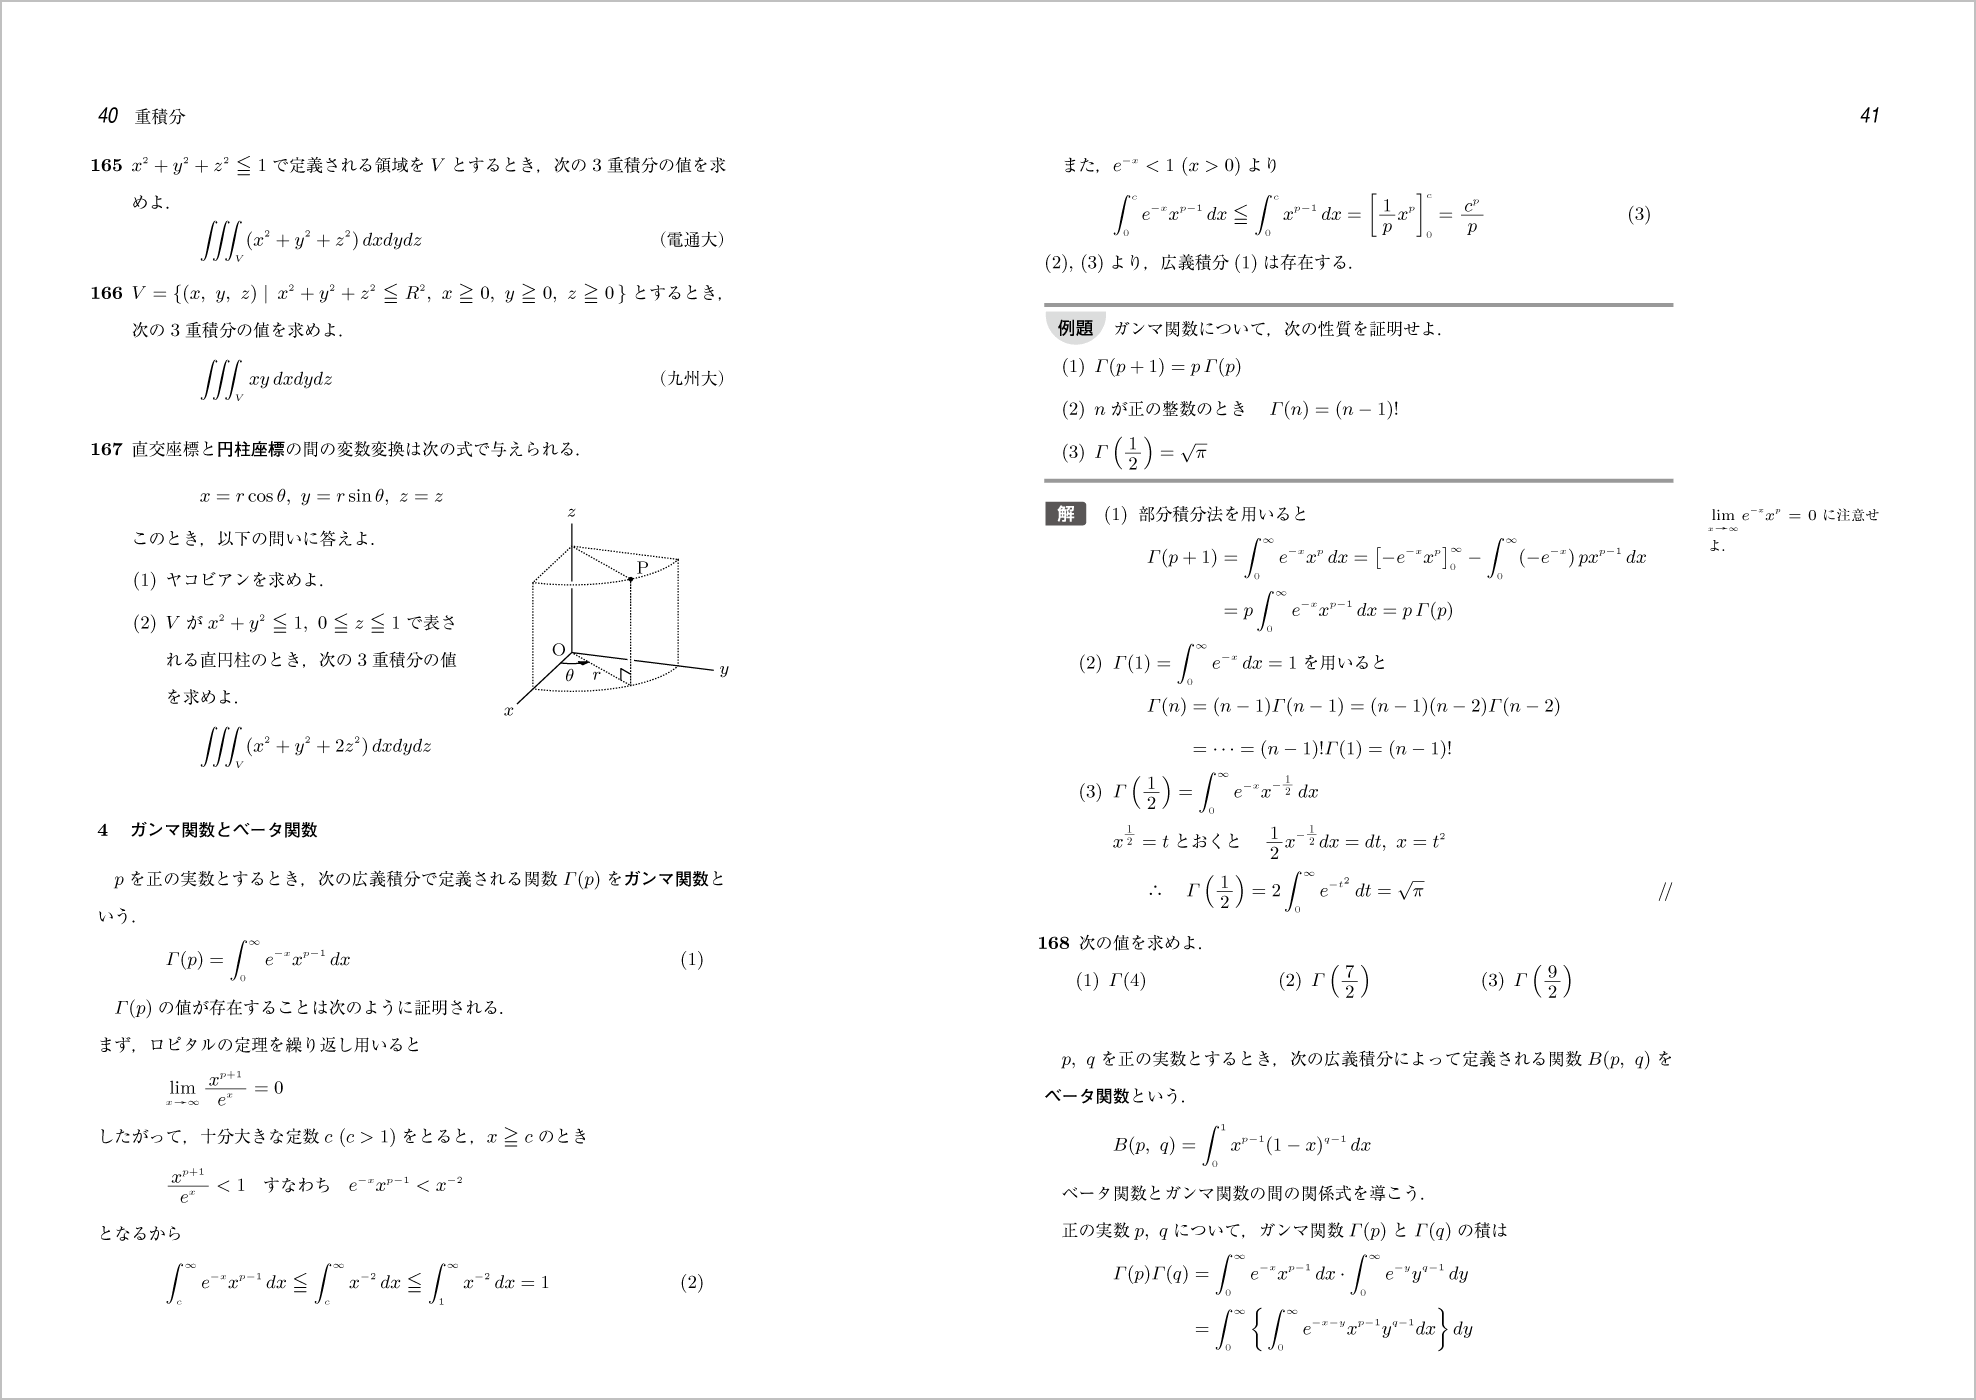 40 重積分
165 x² + y² + z² ≦ 1 で定義される領域を V とするとき，次の 3 重積分の値を求
めよ．
∭_V (x² + y² + z²) dxdydz （電通大）
166 V = {(x, y, z) | x² + y² + z² ≦ R², x ≧ 0, y ≧ 0, z ≧ 0} とするとき，
次の 3 重積分の値を求めよ．
∭_V xy dxdydz （九州大）
167 直交座標と円柱座標の間の変数変換は次の式で与えられる．
x = r cos θ, y = r sin θ, z = z
このとき，以下の問いに答えよ．
(1) ヤコビアンを求めよ．
(2) V が x² + y² ≦ 1, 0 ≦ z ≦ 1 で表さ
れる直円柱のとき，次の 3 重積分の値
を求めよ．
∭_V (x² + y² + 2z²) dxdydz
z
P
O
θ r
y
x
4 ガンマ関数とベータ関数
p を正の実数とするとき，次の広義積分で定義される関数 Γ(p) をガンマ関数と
いう．
Γ(p) = ∫_0^∞ e^{-x} x^{p-1} dx (1)
Γ(p) の値が存在することは次のように証明される．
まず，ロピタルの定理を繰り返し用いると
lim_{x→∞} x^{p+1}/e^x = 0
したがって，十分大きな定数 c (c > 1) をとると，x ≧ c のとき
x^{p+1}/e^x < 1 すなわち e^{-x} x^{p-1} < x^{-2}
となるから
∫_c^∞ e^{-x} x^{p-1} dx ≦ ∫_c^∞ x^{-2} dx ≦ ∫_1^∞ x^{-2} dx = 1 (2)
41
また，e^{-x} < 1 (x > 0) より
∫_0^c e^{-x} x^{p-1} dx ≦ ∫_0^c x^{p-1} dx = [1/p x^p]_0^c = c^p/p (3)
(2), (3) より，広義積分 (1) は存在する．
例題 ガンマ関数について，次の性質を証明せよ．
(1) Γ(p + 1) = p Γ(p)
(2) n が正の整数のとき Γ(n) = (n − 1)!
(3) Γ(1/2) = √π
解 (1) 部分積分法を用いると
lim_{x→∞} e^{-x} x^p = 0 に注意せ
よ．
Γ(p + 1) = ∫_0^∞ e^{-x} x^p dx = [−e^{-x} x^p]_0^∞ − ∫_0^∞ (−e^{-x}) px^{p-1} dx
= p ∫_0^∞ e^{-x} x^{p-1} dx = p Γ(p)
(2) Γ(1) = ∫_0^∞ e^{-x} dx = 1 を用いると
Γ(n) = (n − 1)Γ(n − 1) = (n − 1)(n − 2)Γ(n − 2)
= ··· = (n − 1)!Γ(1) = (n − 1)!
(3) Γ(1/2) = ∫_0^∞ e^{-x} x^{-1/2} dx
x^{1/2} = t とおくと 1/2 x^{-1/2} dx = dt, x = t²
∴ Γ(1/2) = 2 ∫_0^∞ e^{-t²} dt = √π //
168 次の値を求めよ．
(1) Γ(4) (2) Γ(7/2) (3) Γ(9/2)
p, q を正の実数とするとき，次の広義積分によって定義される関数 B(p, q) を
ベータ関数という．
B(p, q) = ∫_0^1 x^{p-1}(1 − x)^{q-1} dx
ベータ関数とガンマ関数の間の関係式を導こう．
正の実数 p, q について，ガンマ関数 Γ(p) と Γ(q) の積は
Γ(p)Γ(q) = ∫_0^∞ e^{-x} x^{p-1} dx · ∫_0^∞ e^{-y} y^{q-1} dy
= ∫_0^∞ {∫_0^∞ e^{-x-y} x^{p-1} y^{q-1} dx} dy